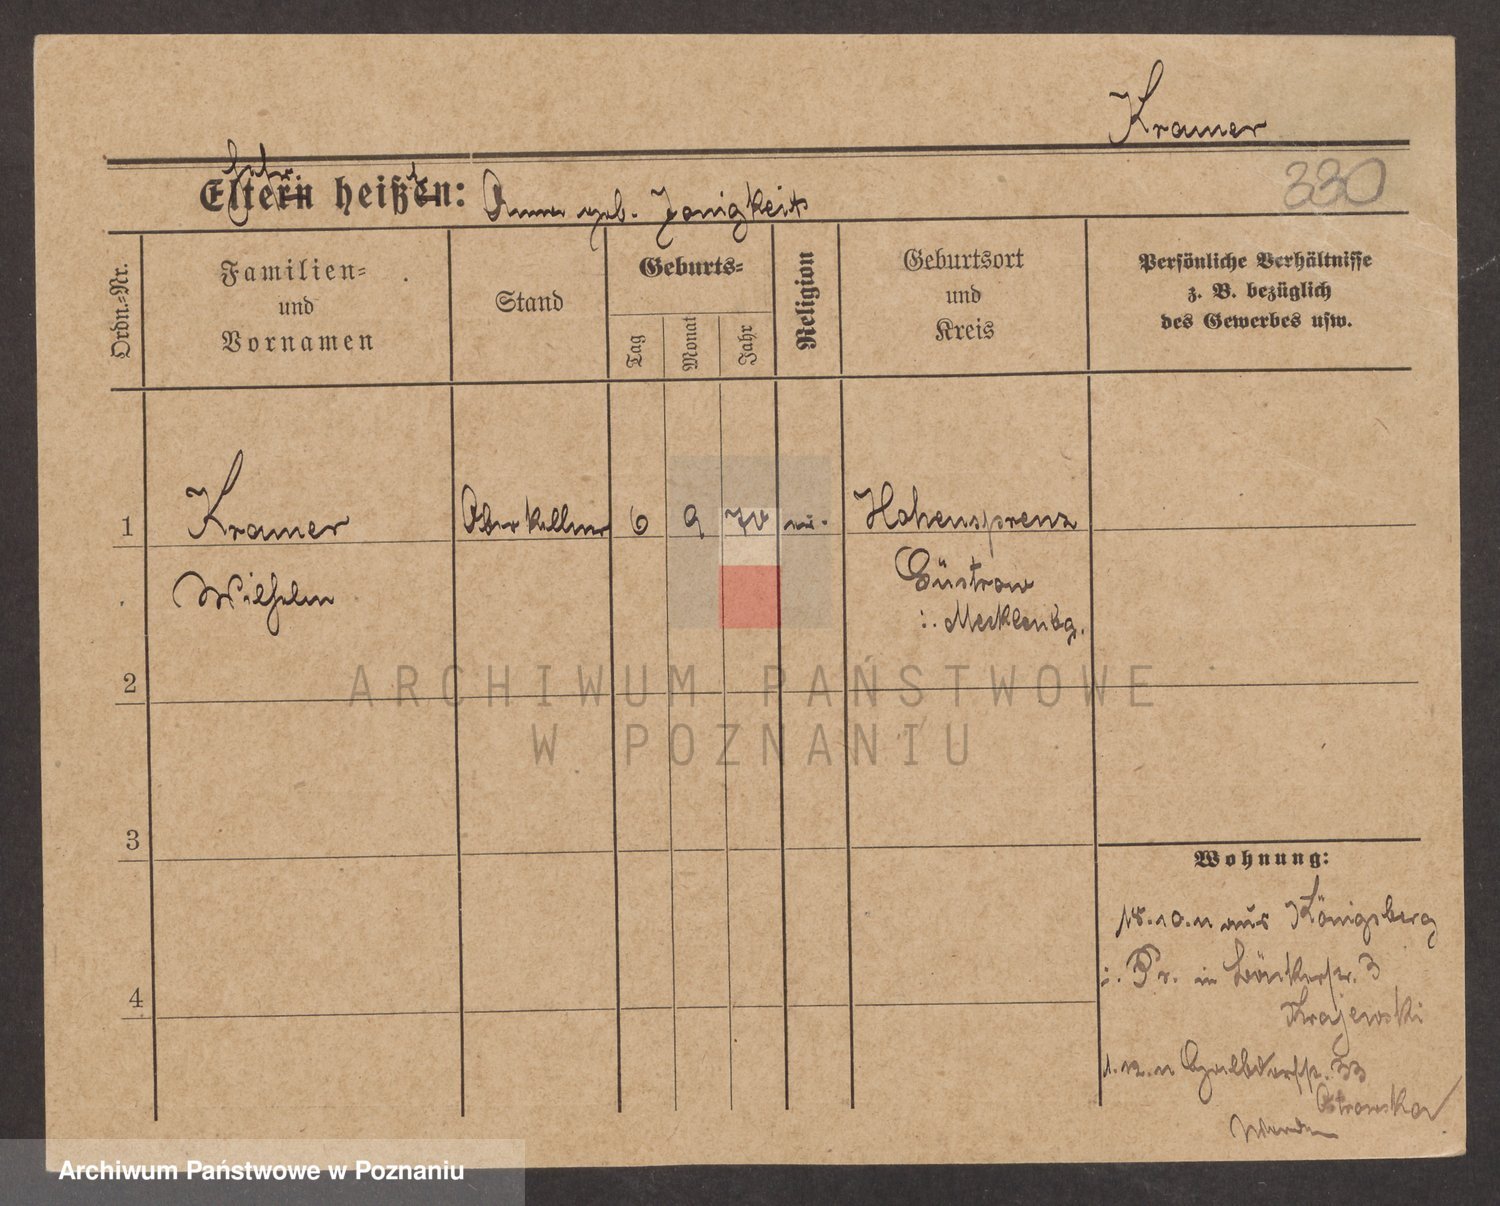 Kramer
330
Eltern heißen: Anna geb. Janigkeits
Ordn.-Nr.
Familien-
und
Vornamen
Stand
Geburts-
Tag
Monat
Jahr
Religion
Geburtsort
und
Kreis
Persönliche Verhältnisse
z. B. bezüglich
des Gewerbes usw.
1
Kramer
Oberkellner
6
9
70
Hohensprenz
Wilhelm
Güstrow
i. Mecklenbg.
2
ARCHIWUM PAŃSTWOWE
W POZNANIU
3
Wohnung:
18.10.11 aus Königsberg
i. Pr. in 3
Krajewski
4
1.12.11 33
Ostrowska
Archiwum Państwowe w Poznaniu